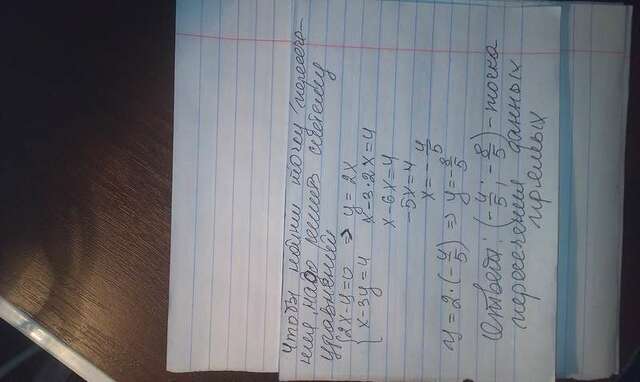 Чтобы найти точку (пересече-
ния, надо решив систему
уравнений
{2x-y=0 => y=2x
{x-3y=4 x-3·2x=4
x-6x=4
-5x=4
x=-4/5
y=2·(-4/5) => y=-8/5
Ответ: (-4/5; -8/5)-точка
пересечения данных
прямых